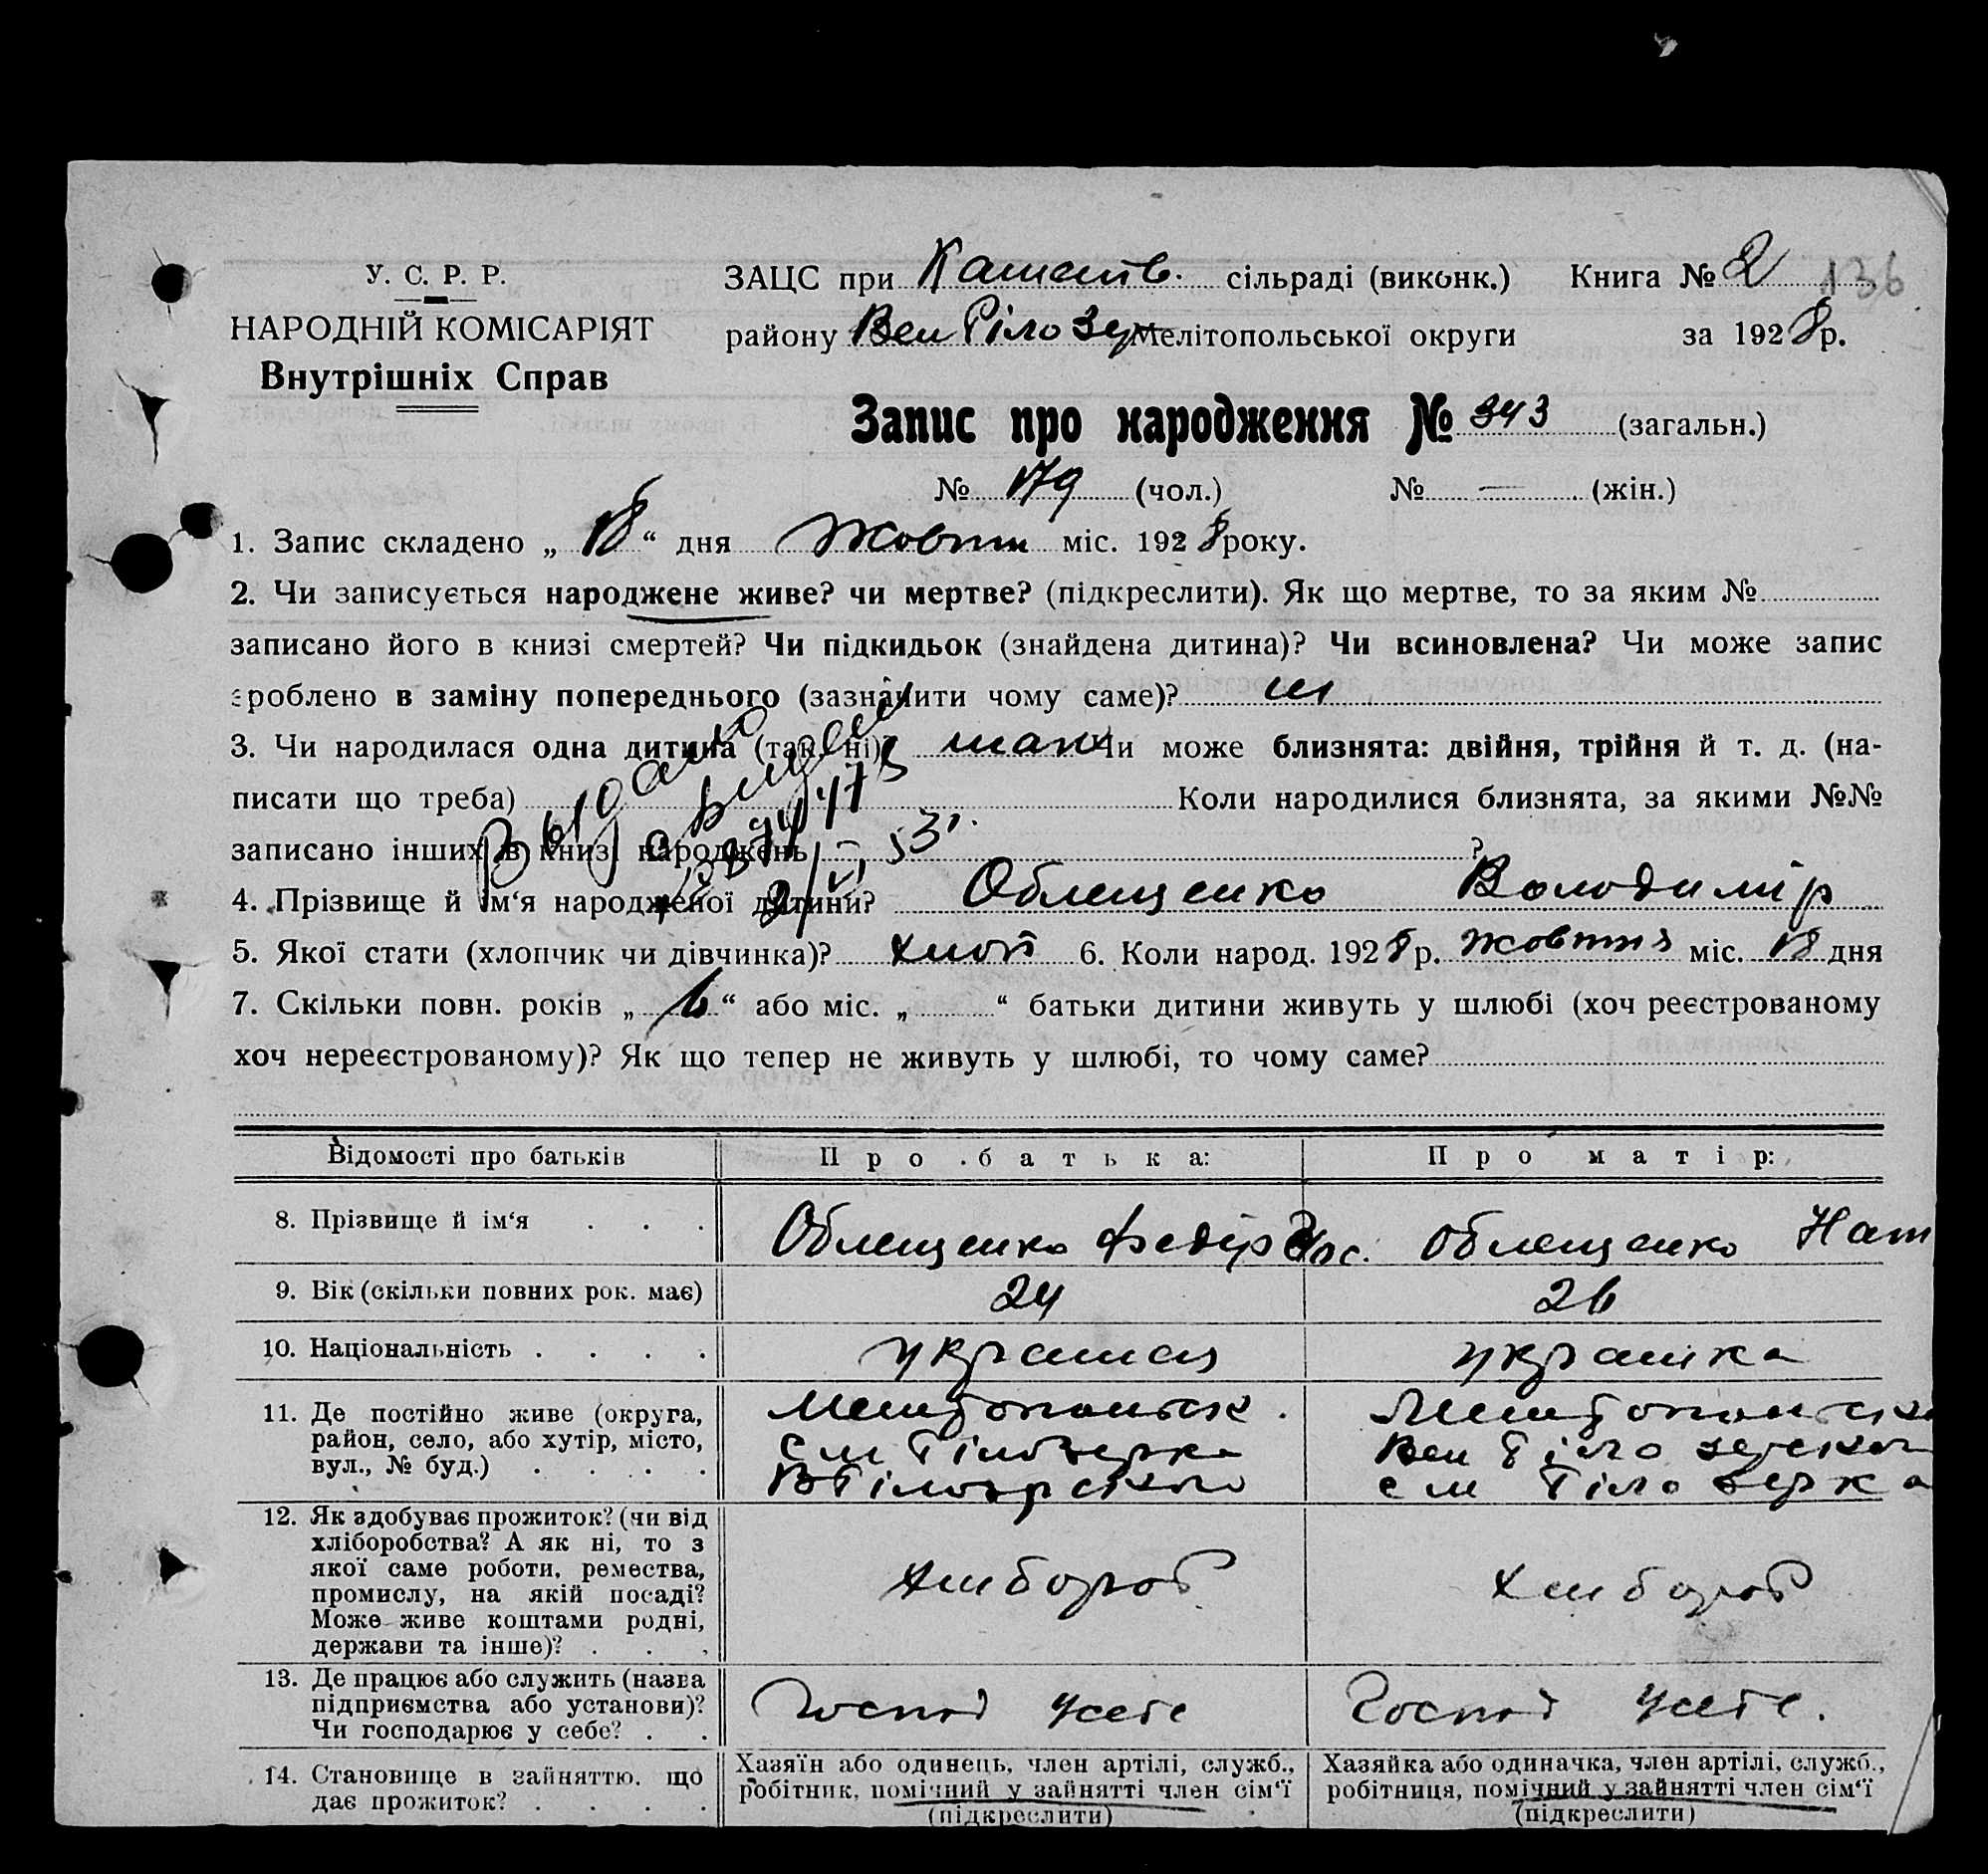 У. С. Р. Р.
НАРОДНІЙ КОМІСАРІЯТ
Внутрішніх Справ
ЗАЦС при Каменв. сільраді (виконк.) Книга № 2 136
району Вел Біло Зер Мелітопольської округи за 1928 р.
Запис про народження № 343 (загальн.)
№ 179 (чол.) № — (жін.)
1. Запис складено „18“ дня Жовтн міс. 1928 року.
2. Чи записується народжене живе? чи мертве? (підкреслити). Як що мертве, то за яким №
записано його в книзі смертей? Чи підкидьок (знайдена дитина)? Чи всиновлена? Чи може запис
зроблено в заміну попереднього (зазначити чому саме)? ні
3. Чи народилася одна дитина (так, ні)? так Чи може близнята: двійня, трійня й т. д. (на-
писати що треба) Коли народилися близнята, за якими №№
записано інших в книзі народжень ?
4. Прізвище й ім‘я народженої дитини? Облещенко Володимір
5. Якої стати (хлопчик чи дівчинка)? хлоп 6. Коли народ. 1928 р. жовтня міс. 18 дня
7. Скільки повн. років „6“ або міс. „ “ батьки дитини живуть у шлюбі (хоч реєстрованому
хоч нереєстрованому)? Як що тепер не живуть у шлюбі, то чому саме?
Відомості про батьків Про батька: Про матір:
8. Прізвище й ім‘я . . . Облещенко Федір Облещенко Нат
9. Вік (скільки повних рок. має) 24 26
10. Національність . . . . українец українка
11. Де постійно живе (округа,
район, село, або хутір, місто,
вул., № буд.) . . . .
Мелітопольськ.
см Білозерка
ВБілозерського
Мелітопольськ
Вел Біло зерськог
см Біло зерка
12. Як здобуває прожиток? (чи від
хліборобства? А як ні, то з
якої саме роботи, ремества,
промислу, на якій посаді?
Може живе коштами родні,
держави та інше)? . . .
хлібороб хлібороб
13. Де працює або служить (назва
підприємства або установи)?
Чи господарює у себе? . .
Господ усебе Господ усебе.
14. Становище в зайняттю, що
дає прожиток? . . . .
Хазяїн або одинець, член артілі, служб.,
робітник, помічний у зайнятті член сім‘ї
(підкреслити)
Хазяйка або одиначка, член артілі, служб.,
робітниця, помічний у зайнятті член сім‘ї
(підкреслити)